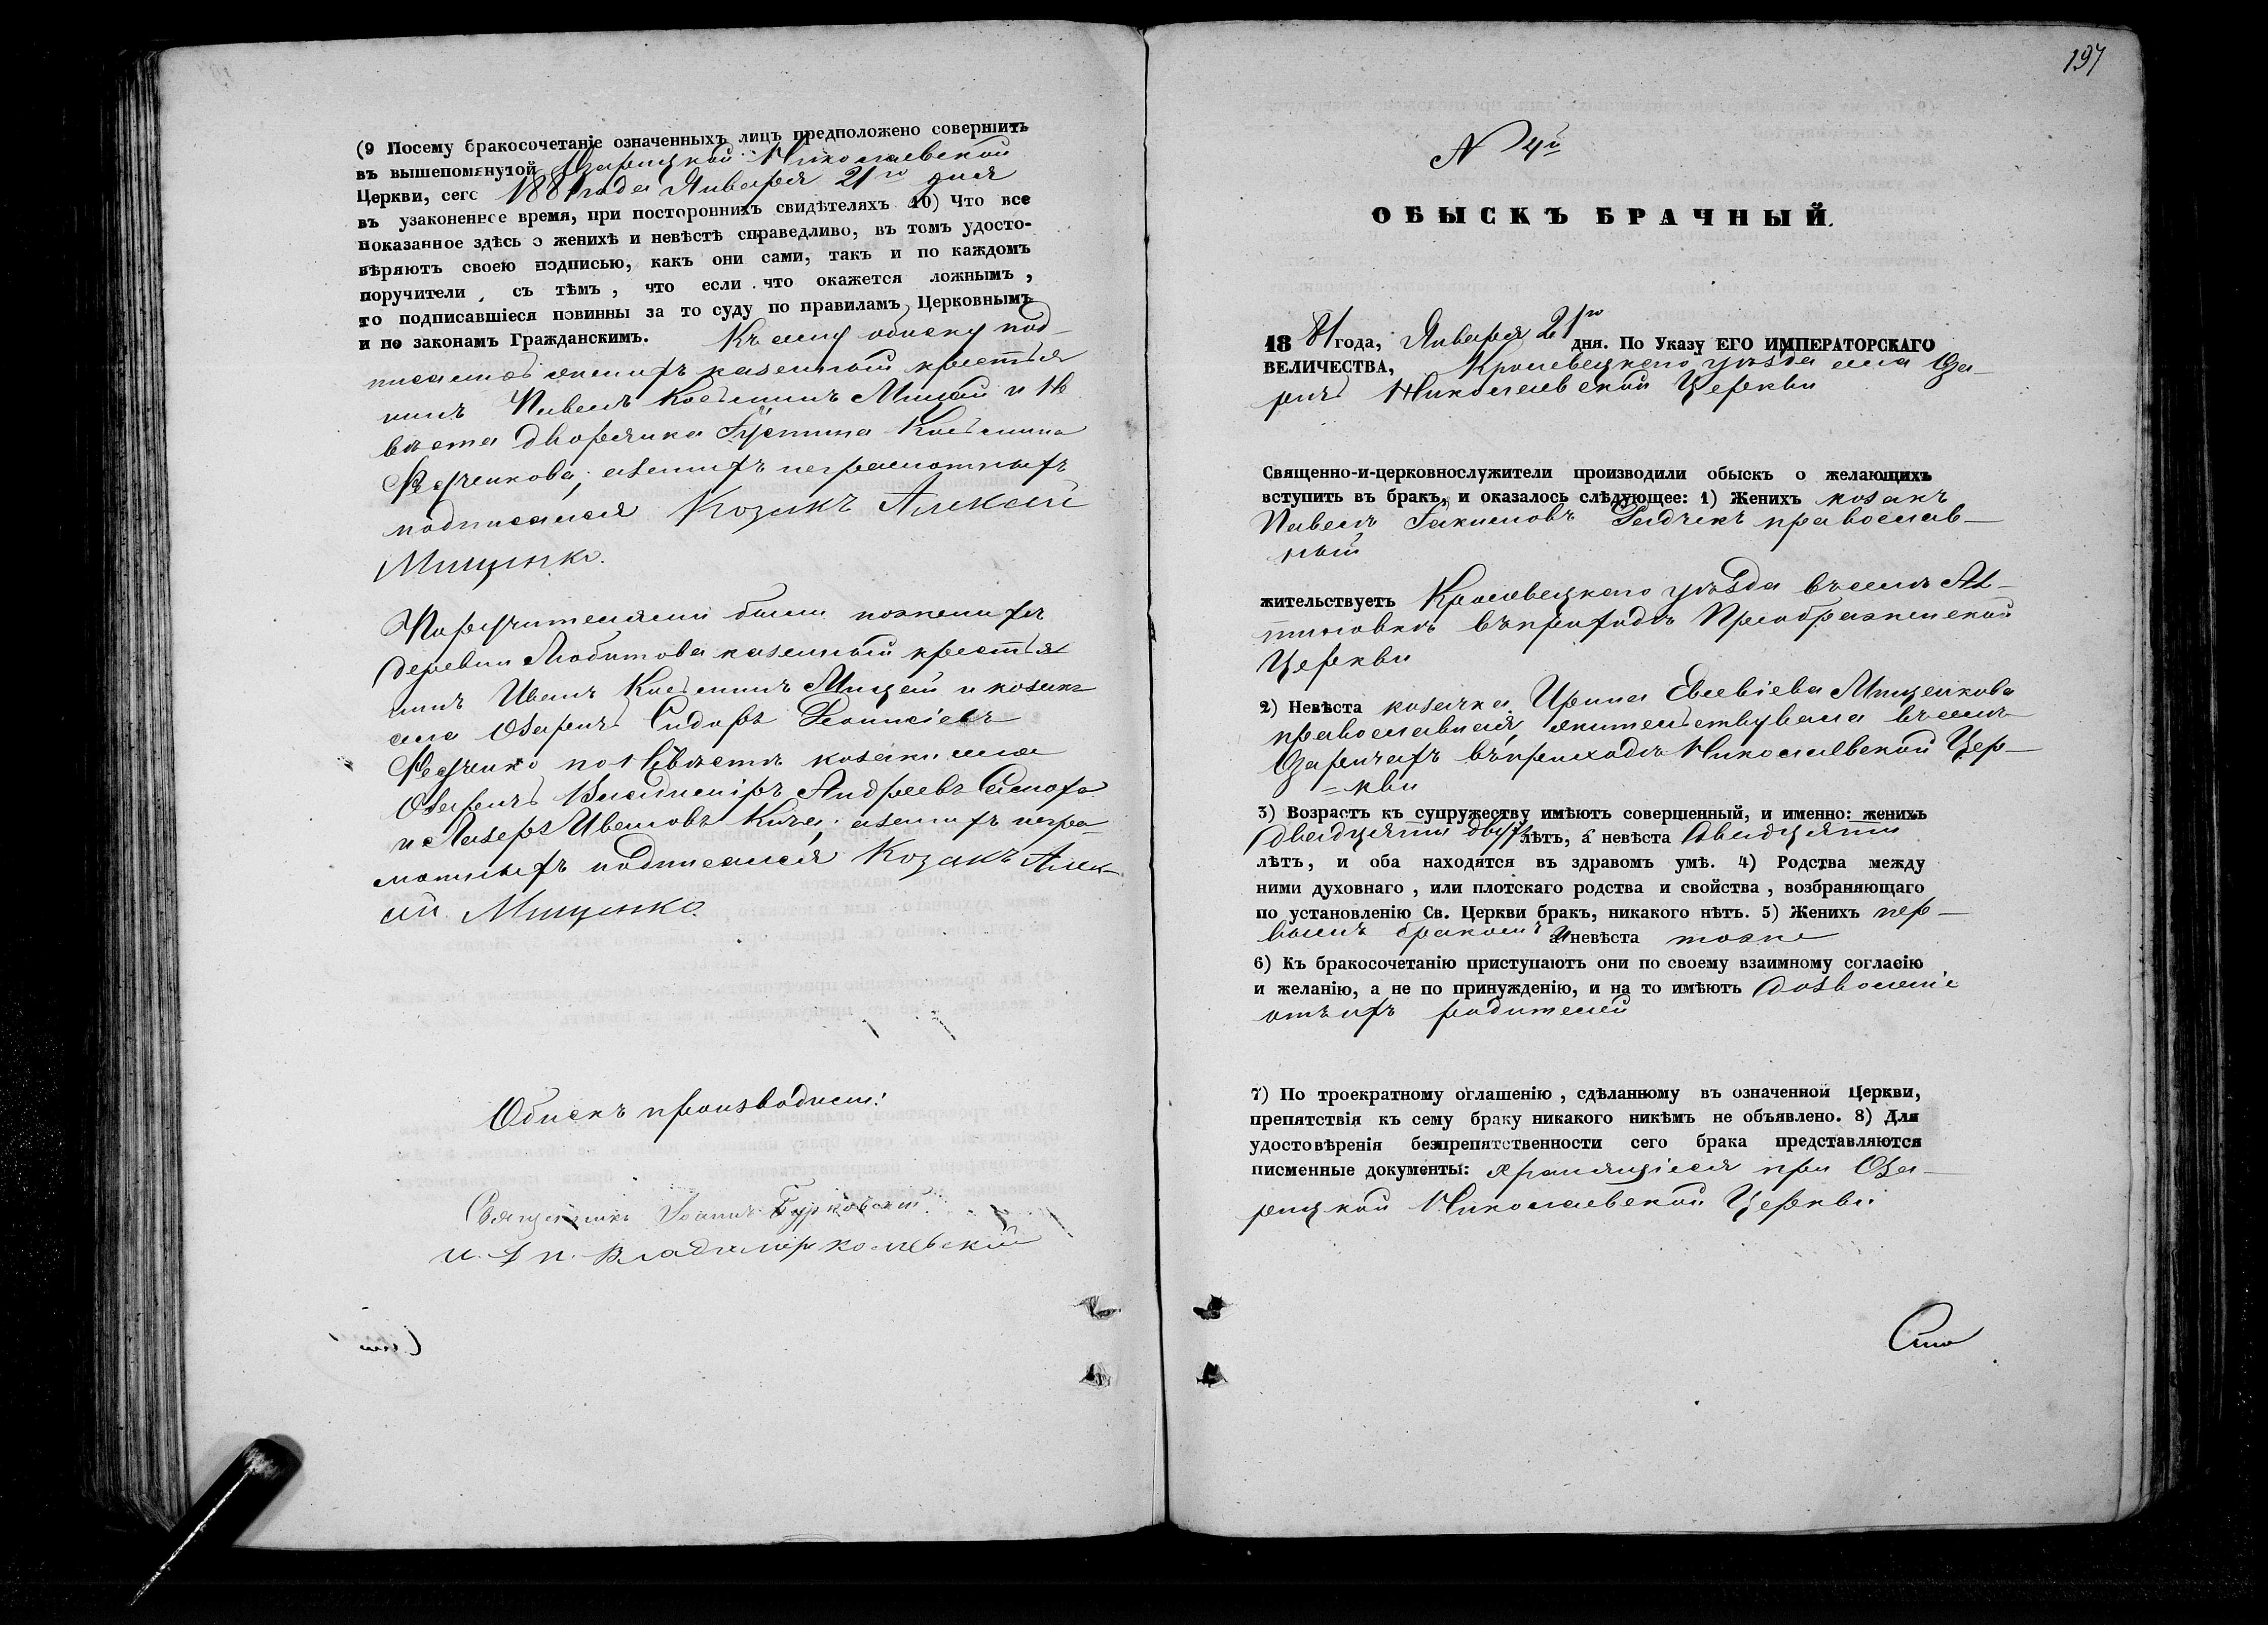 (9 Посему бракосочетаніе означенныхъ лицъ предположено совершить
въ вышепомянутой Озарицкой Николаевской
Церкви, сего 1881 года Января 21го дня
въ узаконенное время, при постороннихъ свидѣтеляхъ 10) Что все
показанное здѣсь о женихѣ и невѣстѣ справедливо, въ томъ удосто-
вѣряютъ своею подписью, какъ они сами, такъ и по каждомъ
поручители, съ тѣмъ, что если что окажется ложнымъ,
то подписавшіеся повинны за то суду по правиламъ Церковнымъ
и по законамъ Гражданскимъ. Къ сему обыску под-
писались женихъ казенный крестья
нинъ Павелъ Косьминъ Мицей и не
вѣста дворянка Іустина Косьмина
Федченкова, а за нихъ неграмотныхъ
подписался Козакъ Алексей
Мищенко.
Поручителями были по женихѣ
деревни Любитова казенный крестья
нинъ Иванъ Косьминъ Мицей и козакъ
села Озаричъ Сидоръ Діонисіевъ
Федченко по невѣстѣ козаки села
Озаричъ Владиміръ Андреевъ
и Лазерь Ивановъ а за нихъ негра-
мотныхъ подписался Козакъ Алек-
сей Мищенко.
Обыскъ производили:
Священникъ Іоаннъ Бурковский
и. д. п. Владимир
197
N 4й
ОБЫСКЪ БРАЧНЫЙ.
1881 года, Января 21го дня. По Указу ЕГО ИМПЕРАТОРСКАГО
ВЕЛИЧЕСТВА, Кролевецкого уѣзда села Оза-
ричъ Николаевской Церкви
Священно-и-церковнослужители производили обыскъ о желающихъ
вступить въ бракъ, и оказалось слѣдующее: 1) Женихъ козакъ
Павелъ Іакимовъ православ-
ный
жительствуетъ Кролевецкого уѣзда въ селѣ Ал-
тиновкѣ въ приходѣ Преображенской
Церкви
2) Невѣста козачка Ирина Евсевіева Мищенкова
православная, жительствувала въ селѣ
Озаричахъ въ приходѣ Николаевской Цер-
= кви
3) Возрастъ къ супружеству имѣютъ совершенный, и именно: женихъ
двадцати двухъ лѣтъ, а невѣста двадцяти
лѣтъ, и оба находятся въ здравомъ умѣ. 4) Родства между
ними духовнаго, или плотскаго родства и свойства, возбраняющаго
по установленію Св. Церкви бракъ, никакого нѣтъ. 5) Женихъ пер-
вымъ бракомъ а невѣста тоже
6) Къ бракосочетанію приступаютъ они по своему взаимному согласію
и желанію, а не по принужденію, и на то имѣютъ дозволеніе
отъ ихъ родителей
7) По троекратному оглашенію, сдѣланному въ означенной Церкви,
препятствія къ сему браку никакого никѣмъ не объявлено. 8) Для
удостовѣренія безпрепятственности сего брака представляются
писменные документы: хранящіеся при Оза-
рицкой Николаевской Церкви
Сто